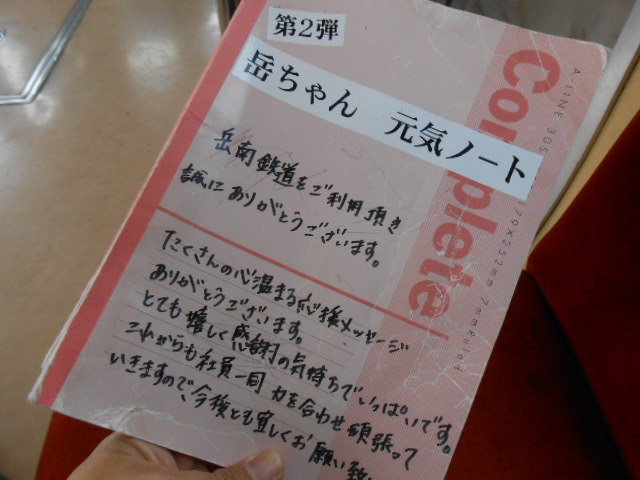 第2弾
岳ちゃん 元気ノート
Complete
A-LINE 30S
79×252mm 7mmRule
岳南鉄道をご利用頂き
誠にありがとうございます。
たくさんの心温まる応援メッセージ
ありがとうございます。
とても嬉しく感謝の気持ちでいっぱいです。
これからも社員一同 力を合わせ頑張って
いきますので、今後とも宜しくお願い致